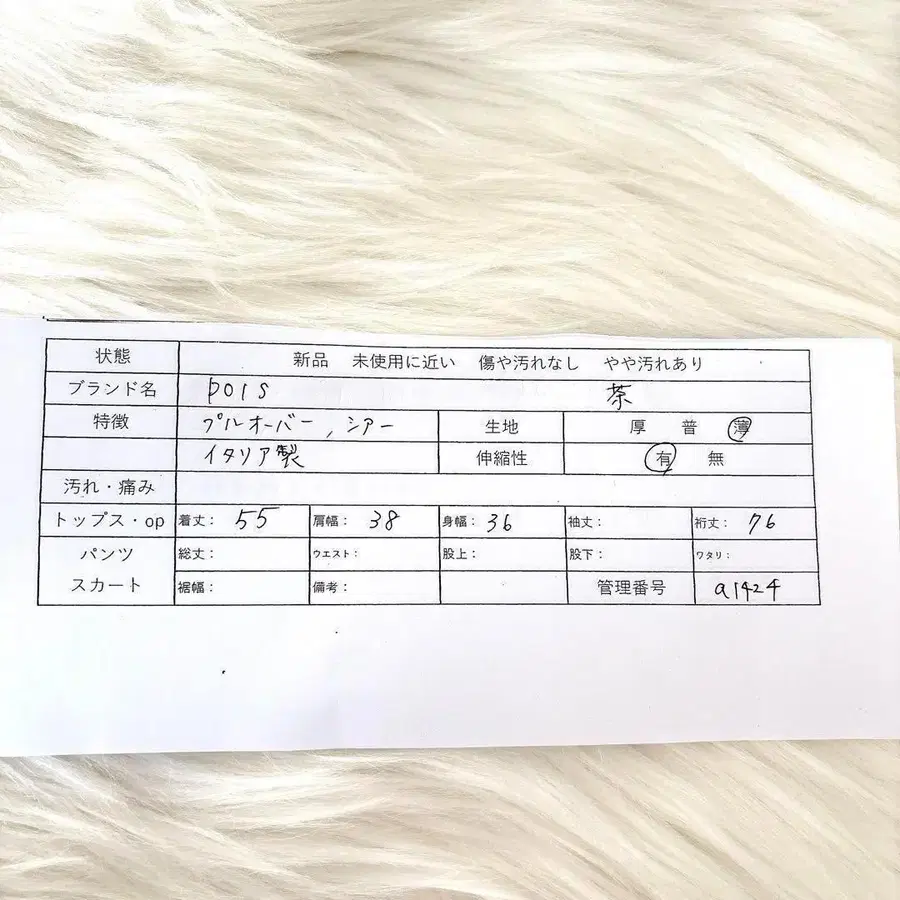 状態 新品 未使用に近い 傷や汚れなし やや汚れあり
ブランド名 pois 茶
特徴 プルオーバー, シアー 生地 厚 普 薄
イタリア製 伸縮性 有 無
汚れ・痛み
トップス・op 着丈: 55 肩幅: 38 身幅: 36 袖丈: 裄丈: 76
パンツ 総丈: ウエスト: 股上: 股下: ワタリ:
スカート 裾幅: 備考: 管理番号 a1424